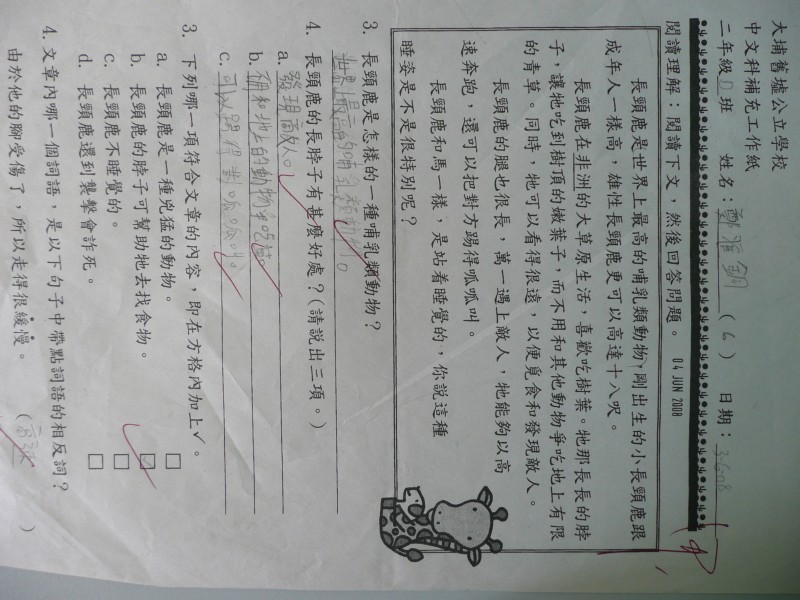 大埔舊墟公立學校
中文科補充工作紙
二年級D班 姓名：鄭雅 (6) 日期：3-6-08
閱讀理解：閱讀下文，然後回答問題。 04 JUN 2008
長頸鹿是世界上最高的哺乳類動物，剛出生的小長頸鹿跟
成年人一樣高，雄性長頸鹿更可以高達十八呎。
長頸鹿在非洲的大草原生活，喜歡吃樹葉。牠那長長的脖
子，讓牠吃到樹頂的嫩葉子，而不用和其他動物爭吃地上有限
的青草。同時，牠可以看得很遠，以便覓食和發現敵人。
長頸鹿的腿也很長，萬一遇上敵人，牠能夠以高
速奔跑，還可以把對方踢得呱呱叫。
長頸鹿和馬一樣，是站着睡覺的，你說這種
睡姿是不是很特別呢？
3. 長頸鹿是怎樣的一種哺乳類動物？
世界上最高的哺乳類動物。
4. 長頸鹿的長脖子有甚麼好處？(請說出三項。)
a. 發現敵人。
b. 和地的動物爭吃草
c. 可以踢得對呱呱叫。
3. 下列哪一項符合文章的內容，即在方格內加上✓。
a. 長頸鹿是一種兇猛的動物。 □
b. 長頸鹿的脖子可幫助牠去找食物。 □
c. 長頸鹿不睡覺的。 □
d. 長頸鹿遇到襲擊會詐死。 □
4. 文章內哪一個詞語，是以下句子中帶點詞語的相反詞？
由於他的腳受傷了，所以走得很緩慢。 ( )